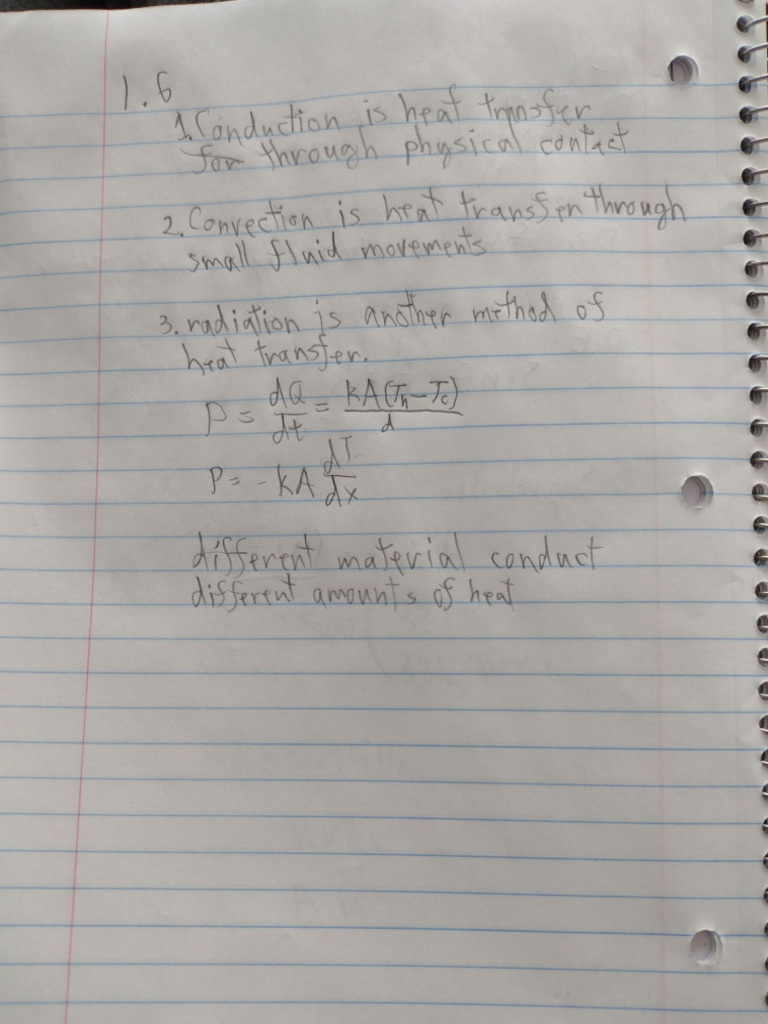 1.6
1. Conduction is heat transfer
for through physical contact
2. Convection is heat transfer through
small fluid movements
3. radiation is another method of
heat transfer.
P = dQ/dt = kA(Th-Tc)/d
P = -kA dT/dx
different material conduct
different amounts of heat